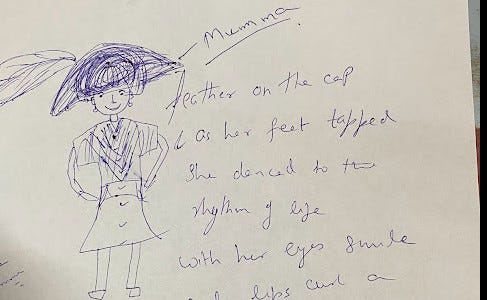 Mumma
feather on the cap
& as her feet tapped
She danced to the
rhythm of life
with her eyes smile
lips curl a